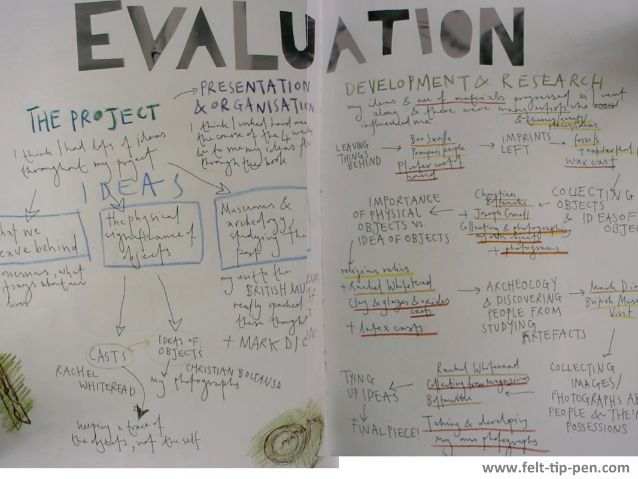 EVALUATION
THE PROJECT
I think I had lots of ideas
throughout my project
PRESENTATION
& ORGANISATION
I think I worked hard over
the course of the 4 weeks
through the book
IDEAS
what we
leave behind
possessions, what
it says about our
lives
The physical
significance of
objects
Museums &
archeology,
studying the
past
my visit to the
BRITISH MU
really sparked
these thoughts
+ MARK DION
CASTS
RACHEL
WHITEREAD
IDEAS OF
OBJECTS
CHRISTIAN BOLTANSKI
my photographs
keeping a trace of
the objects, not the self
DEVELOPMENT & RESEARCH
my ideas & use of materials progressed as I went
along & there were
influenced me
LEAVING
THINGS
BEHIND
Pompeii people
Plaster casts
IMPRINTS
LEFT
fossils
Wax cast
COLLECTING
OBJECTS
& IDEAS OF
OBJEC
Christian
Boltanski
+ Joseph Cornell
Collecting & photographing
my own objects
+ photograms
IMPORTANCE
OF PHYSICAL
OBJECTS VS.
IDEA OF OBJECTS
religious relics
+ Rachel Whiteread
Clay & glazes & oxides
casts
+ latex casts
ARCHEOLOGY
& DISCOVERING
PEOPLE FROM
STUDYING
ARTEFACTS
Mark Dion
British Museum
visit
COLLECTING
IMAGES/
PHOTOGRAPHS
PEOPLE & THEIR
POSSESSIONS
Rachel Whiteread
Collecting from magazines
Boltanski
TYING
UP IDEAS
FINAL PIECE!
Taking & developing
my own photographs
www.felt-tip-pen.com